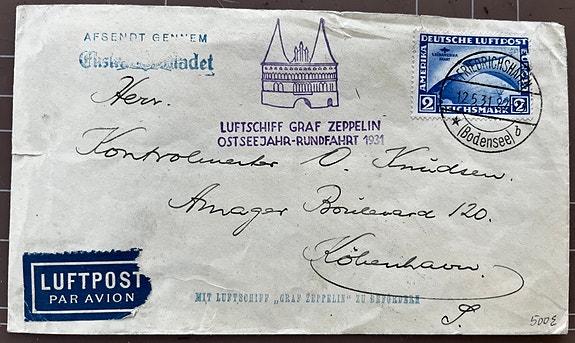 AFSENDT GENNEM
LUFTSCHIFF GRAF ZEPPELIN
OSTSEEJAHR-RUNDFAHRT 1931
DEUTSCHE LUFTPOST
AMERIKA
EUROPA
2 REICHSMARK 2
FRIEDRICHSHAFEN
12.5.31
(Bodensee) b
Herr.
Kontrolmester O. Knudsen.
Amager Boulevard 120.
København.
S.
LUFTPOST
PAR AVION
MIT LUFTSCHIFF „GRAF ZEPPELIN" ZU BEFÖRDERN
500€